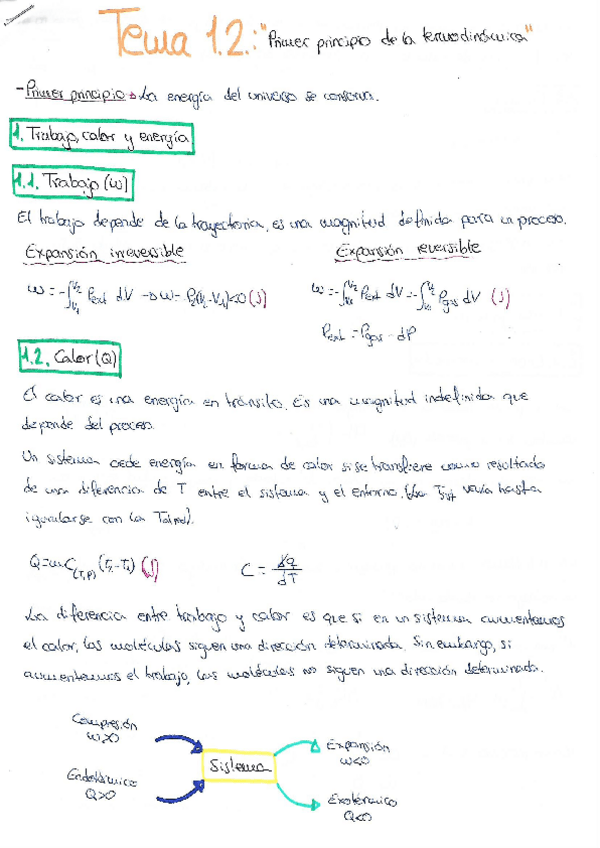 Tema 1.2.: "Primer principio de la termodinámica"
- Primer principio → La energía del universo se conserva.
1. Trabajo, calor y energía
1.1. Trabajo (W)
El trabajo depende de la trayectoria, es una magnitud definida para un proceso.
Expansión irreversible
Expansión reversible
W = -∫_{V₁}^{V₂} Pext dV → W = -P₂(V₂-V₁) < 0 (J)
W = -∫_{V₁}^{V₂} Pext dV = -∫_{V₁}^{V₂} Pgas dV (J)
Pext = Pgas - dP
1.2. Calor (Q)
El calor es una energía en tránsito. Es una magnitud indefinida que
depende del proceso.
Un sistema cede energía en forma de calor si se transfiere como resultado
de una diferencia de T entre el sistema y el entorno. (La Tsist varía hasta
igualarse con la
Q = mC(T,P) (T₂-T₁) (J)
C = đq/dT
La diferencia entre trabajo y calor es que si en un sistema aumentamos
el calor, las moléculas siguen una dirección determinada. Sin embargo, si
aumentemos el trabajo, las moléculas no siguen una dirección determinada.
Compresión
W>0
Endotérmico
Q>0
Sistema
Expansión
W<0
Exotérmico
Q<0